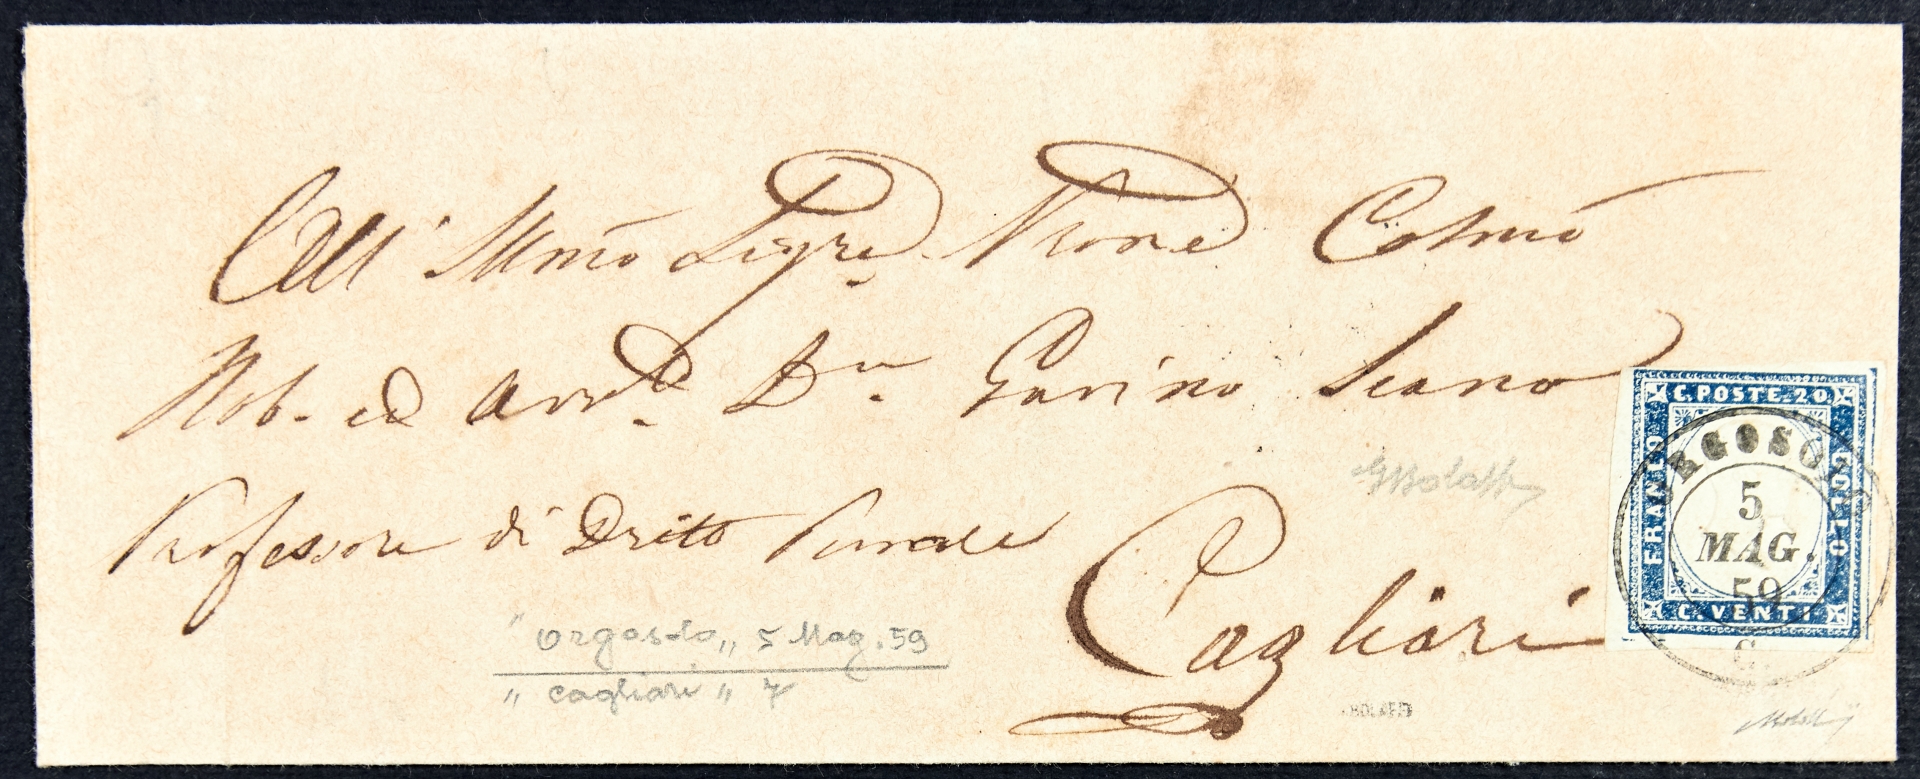 All' Illmo Sigre Prone Colmo
Nob. ed Avvto Dn Gavino Scano
Professore di Dritto Penale
Cagliari
C. POSTE. 20
FRANCO
BOLLO
C. VENTI
ORGOSOLO
5
MAG.
59
C.
"orgosolo" 5 Mag. 59
"cagliari" 7